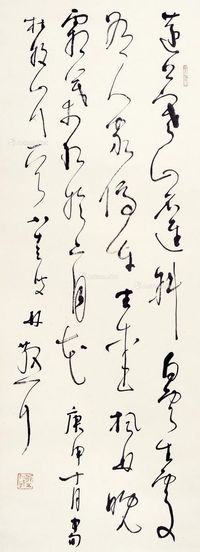 遠上寒山石逕斜白雲生處
有人家停車坐愛楓林晚
霜葉紅於二月花庚申十月書
杜牧山行一首 叟林散耳